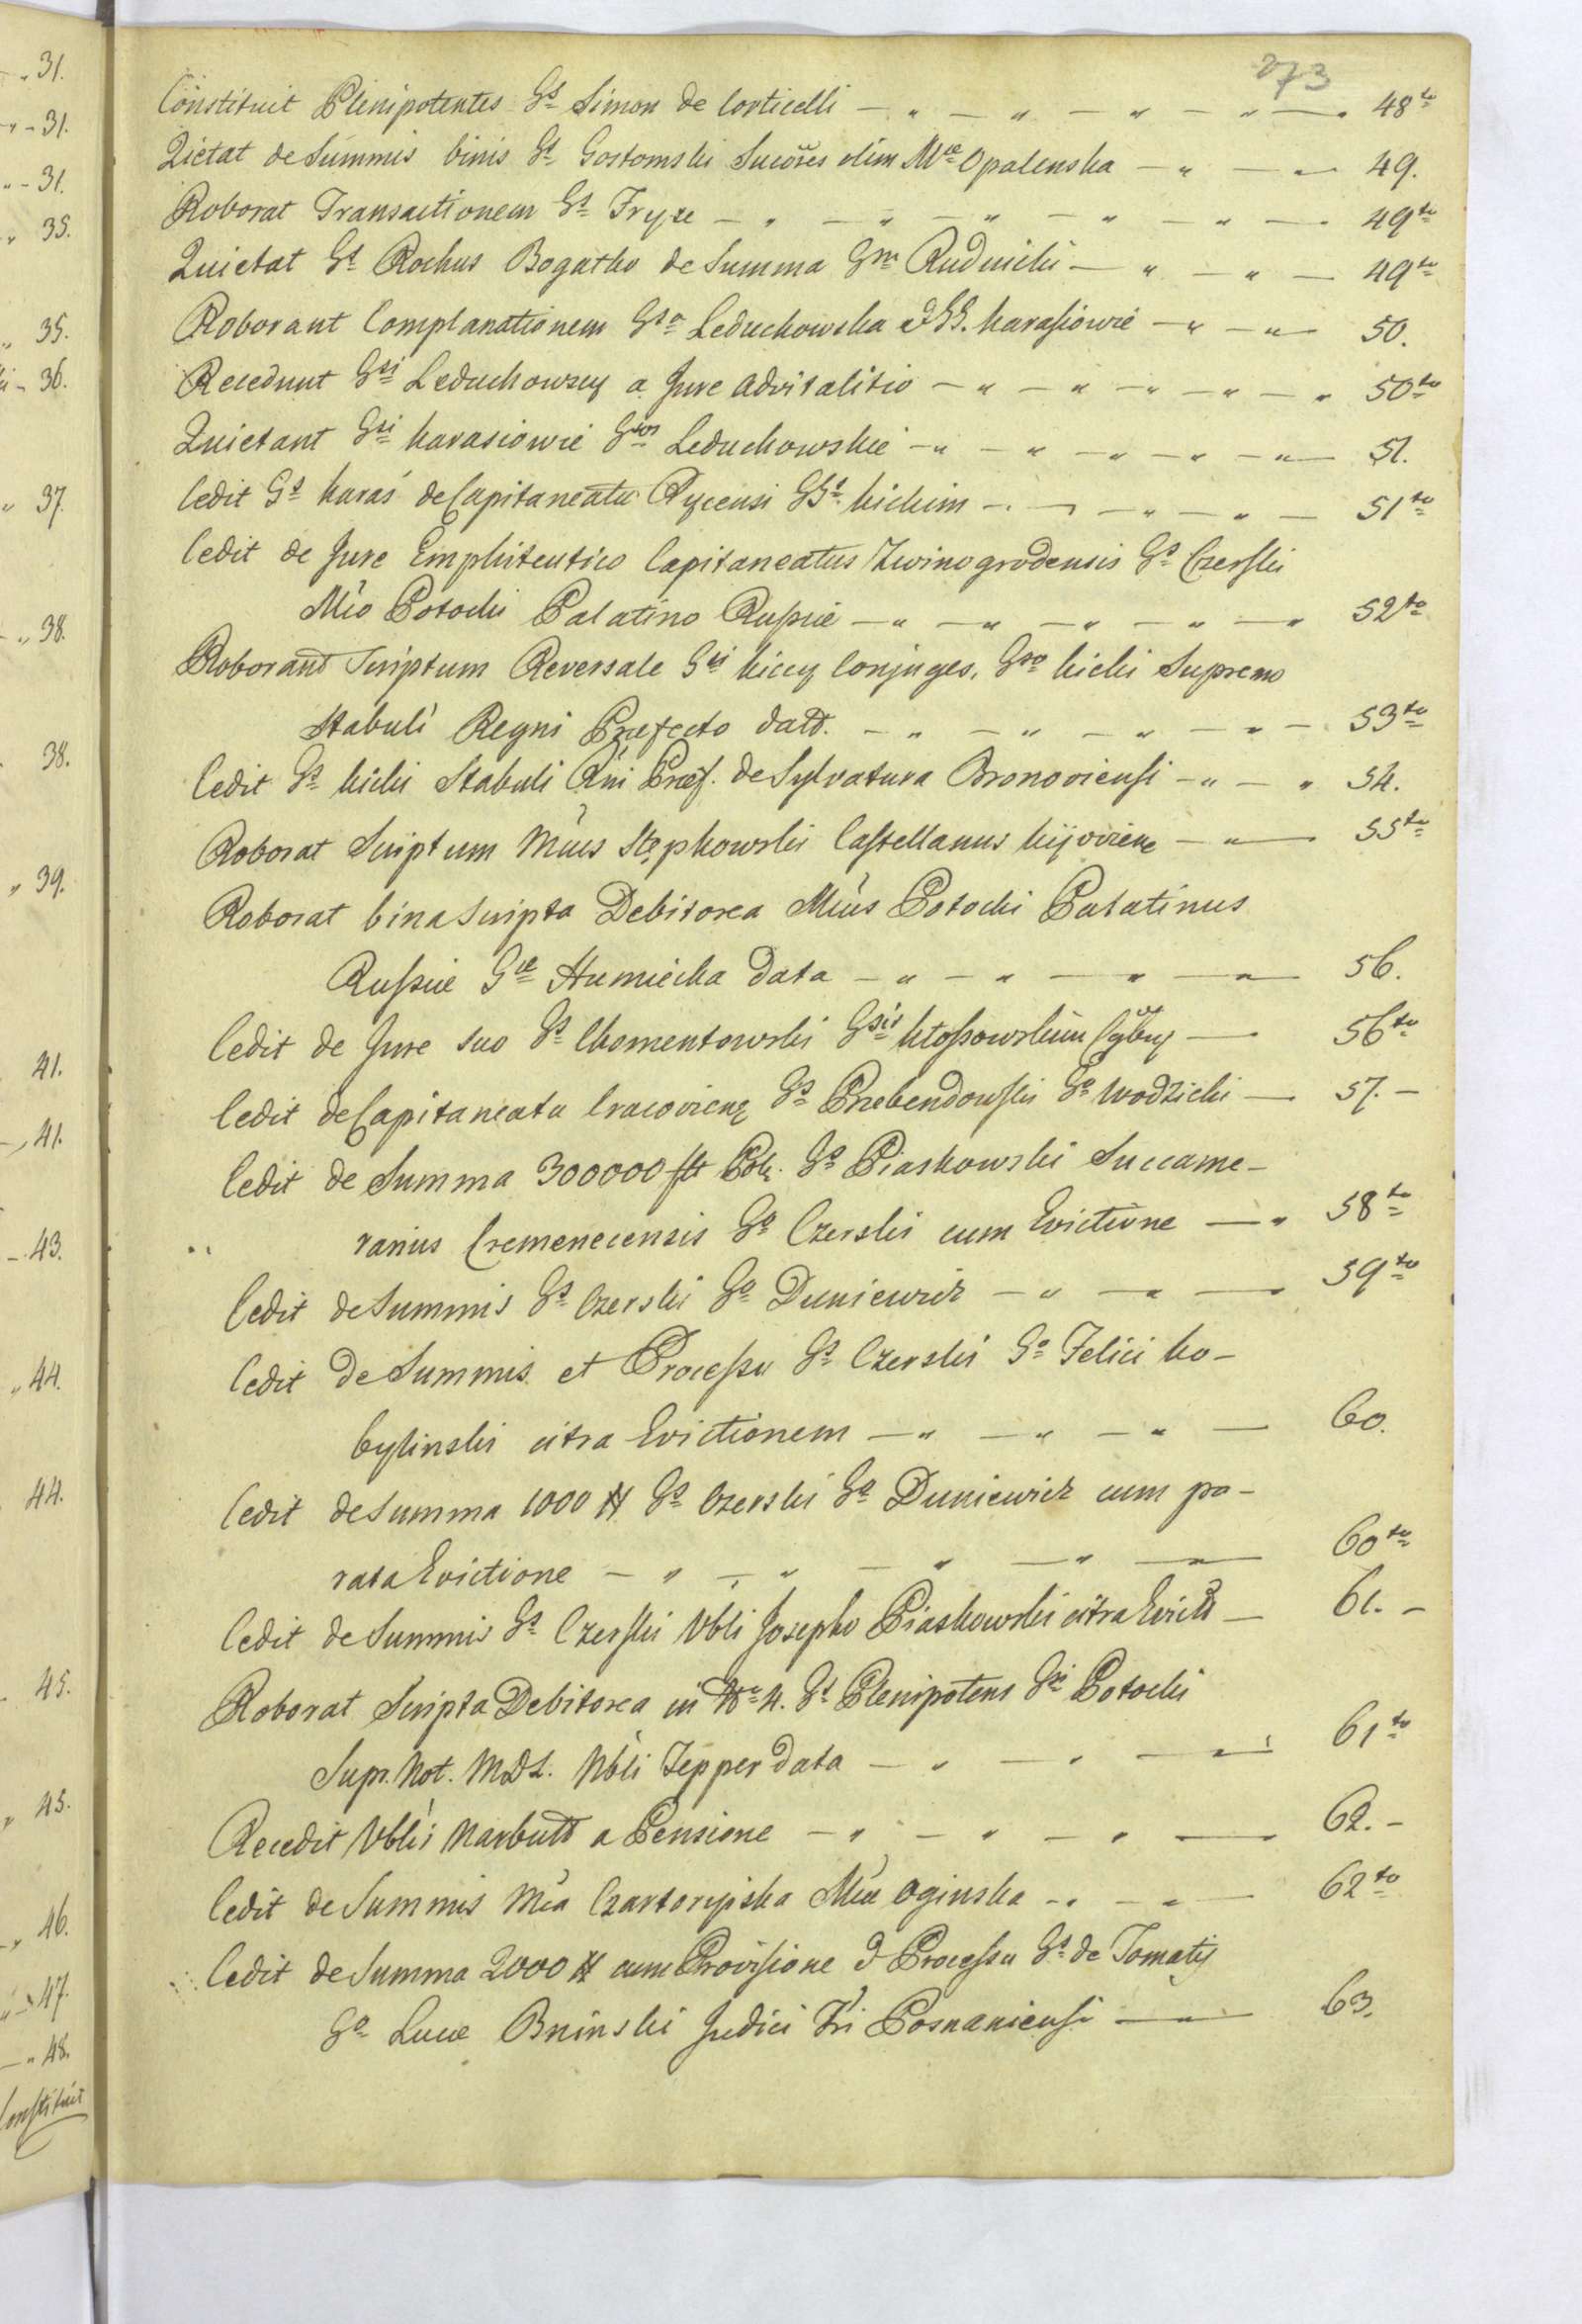 273
Constituit Plenipotentes Gs Simon de Corticelli — " — " — " — " — " 48to
Qietat de Summis binis Gs Gostomski Sucores olim Mae Opalenska — " — " 49.
Roborat Transactionem Gs Fryze — " — " — " — " — " — 49to
Quietat Gs Rochus Bogatko de Summa Gm Rudnicki — " — " — 49to
Roborant Complanationem Gsa Leduchowska & GG. Karasiowie — " — " 50.
Recedunt Gsi Leduchowscy a Jure advitalitio — " — " — " — " — " 50to
Quietant Gsi Karasiowie Gsos Leduchowskie — " — " — " — " — " 51.
Cedit Gs Karaś de Capitaneatu Rycensi GGs Kickim — " — " — " — 51to
Cedit de Jure Emphiteutico Capitaneatus Zwinogrodensis Gs Czerski
Mio Potocki Palatino Russie — " — " — " — " — " 52to
Roborant Scriptum Reversale Gsi Kiccy Conjuges, Gso Kicki Supremo
Stabuli Regni Præfecto datt. — " — " — " — " — 53to
Cedit Gs Kicki Stabuli Rni Præf. de Sylvatura Bronoviensi — " — " 54.
Roborat Scriptum Mcus Stępkowski Castellanus Kijoviene — " — 55to
Roborat bina Scripta Debitorea Mcus Potocki Palatinus
Russiæ Gæ Humiecka data — " — " — " — " 56.
Cedit de Jure suo Gs Chomentowski Gsis Kłossowskim — 56to
Cedit de Capitaneatu Cracoviene Gs Przebendowski Go Wodzicki — 57. —
Cedit de Summa 300000 flr Pol. Gs Piaskowski Succame-
rarius Cremenecensis Go Czerski cum Evictione — " 58to
Cedit de Summis Gs Czerski Go Duniewicz — " — " — 59to
Cedit de Summis et Processu Gs Czerski Go Felici Ko-
bylinski citra Evictionem — " — " — " — 60.
Cedit de Summa 1000 # Gs Czerski Go Duniewicz cum pa-
rata Evictione — " — " — " — " — 60to
Cedit de Summis Gs Czerski Nbli Josepho Piaskowski citra Evictt — 61. —
Roborat Scripta Debitorea in No 4. Gs Plenipotens Gsi Potocki
Supr. Not. M.D.L. Nbli Tepper data — " — " — " 61to
Recedit Nblis Narbutt a Pensione — " — " — " — 62. —
Cedit de Summis Mca Czartoryiska Mcæ Oginska — " — " 62to
Cedit de Summa 2000 # cum Provisione & Processu Gs de Tomatis
Go Lucæ Bninski Judici Tri Posnaniensi — " — 63.
31.
31.
31.
35.
35.
36.
37.
38.
38.
39.
41.
41.
43.
44.
44.
45.
45.
46.
47.
48.
Constituit